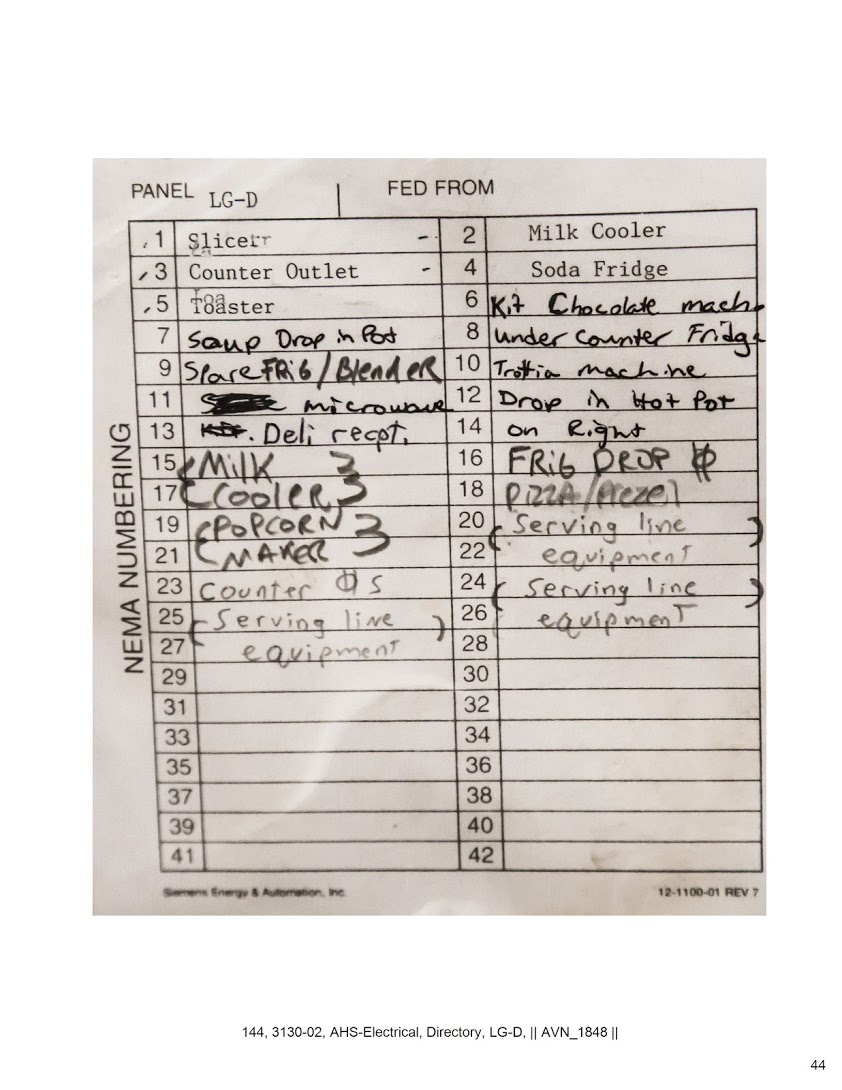 PANEL LG-D FED FROM
NEMA NUMBERING
1 Slicerr - 2 Milk Cooler
3 Counter Outlet - 4 Soda Fridge
5 Toaster 6 Kit Chocolate mach
7 Soup Drop in Pot 8 under counter Fridge
9 Spare FRIG/BlendeR 10 machine
11 microwave 12 Drop in Hot Pot
13 Deli recpt. 14 on Right
15 (MilK } 16 FRIG DROP
17 (COOLER } 18 PIZZA/Prezel
19 (POPCORN } 20 (Serving line )
21 (MAKER } 22 equipment
23 Counter S 24 (Serving line )
25 (Serving live ) 26 equipment
27 equipment 28
29 30
31 32
33 34
35 36
37 38
39 40
41 42
Siemens Energy & Automation, Inc. 12-1100-01 REV 7
144, 3130-02, AHS-Electrical, Directory, LG-D, || AVN_1848 ||
44